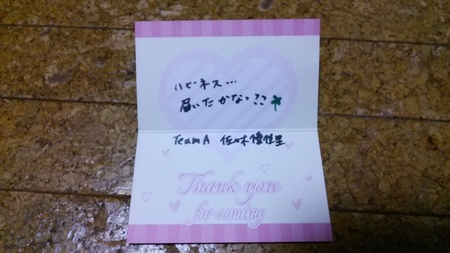 ハピネス…
届いたかな??
Team A 佐々木優佳里
Thank you
for coming